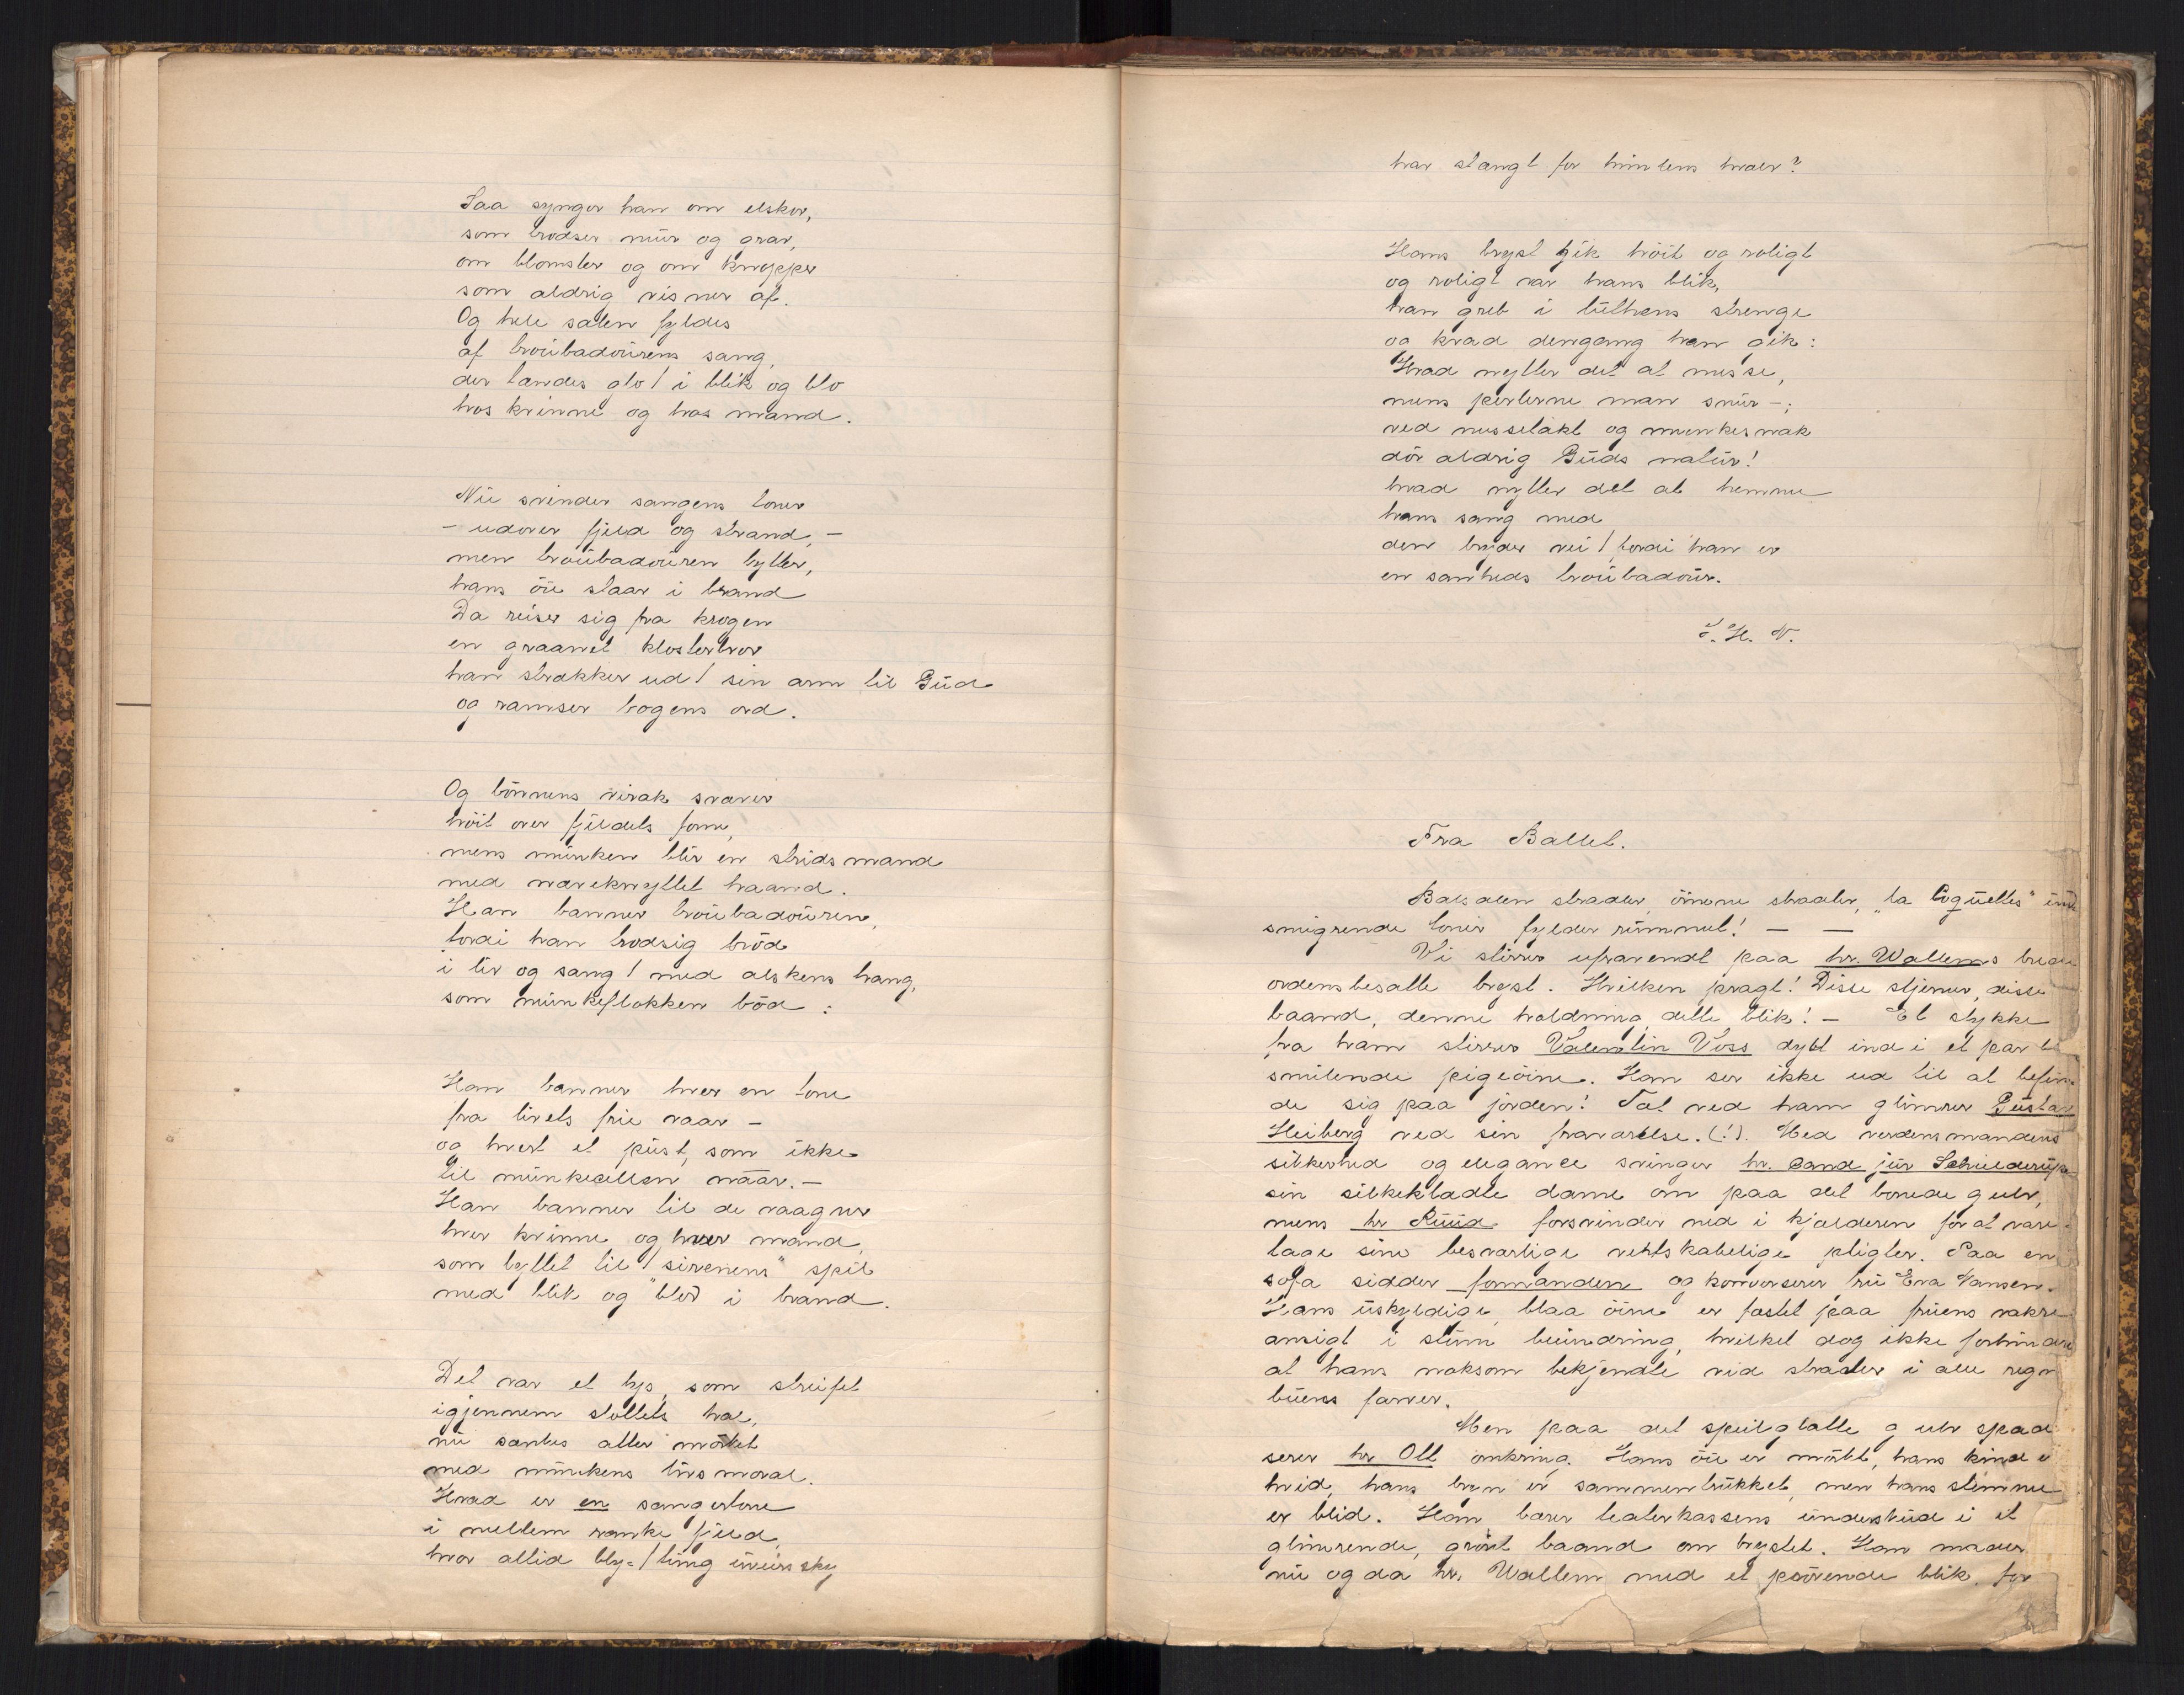 Saa synger han om elskov,
som trodser mur og grav,
om blomster og om knopper
som aldrig visner af.
Og hele salen fyldes
af troubadourens sang,
der tændes glo / i blik og blo
hos kvinne og hos mand.
Nu svinder sangens toner
- udover fjeld og strand, -
men troubadouren lytter,
hans öie staar i brand
Da reiser sig fra krogen
en graanet klosterbror
han strækker ud / sin arm til Gud
og ramser bogens ord.
Og bönnens virak svæver
höit over fjeldets fonn,
mens munken blir en stridsmand
med næveknyttet haand.
Han banner troubadouren,
fordi han trodsig bröd
i liv og sang / med alskens tvang,
som munkeflokken böd:
Han banner hver en tone
fra livets frie vaar -
og hvert et pust, som ikke
til munkecellen naar. -
Han banner til de vaagner
hver kvinne og hver mand,
som lyttet til "sirenens" spil
med blik og blod i brand.
Det var et lys, som streifet
igjennem slottets hal,
nu sænkes atter mörket
med munkens livsmoral.
Hvad er en sangertone
i mellem ranke fjeld,
hvor altid bly= / tung uveirssky
har stængt for himlens hvælv?
Hans bryst gik höit og roligt
og roligt var hans blik,
han greb i luthens strenge
og kvad dengang han gik:
Hvad nytter det at messe,
mens perlerne man snur -;
ved messetakt og munkesnak
dör aldrig Guds natur!
hvad nytter det at hemme
hans sang med
den bryder vei / fordi han er
en sanheds troubadour.
S. H. N.
Fra Ballet.
Balsalen straaler, öinene straaler, "la Coquettes" ind
smigrende toner fylder rummet! — —
Vi stirrer ufravendt paa hr. Wallems brede
ordensbesatte bryst. Hvilken pragt! Disse stjerner, disse
baand, denne holdning, dette blik! - Et stykke
fra ham stirrer Valentin Voss dybt ind i et par
smilende pigeöine. Han ser ikke ud til at befin-
de sig paa jorden! Tæt ved ham glimrer Gustav
Heiberg ved sin fraværelse. (!). Med verdensmandens
sikkerhed og elegance svinger hr. cand jur Schielderup
sin silkeklædte dame om paa det bonede gulv,
mens hr Ruud forsvinder ned i kjælderen for at vare-
tage sine besværlige vertskabelige pligter. Paa en
sofa sidder formanden og konverserer fru Eva Hansen.
Hans uskyldige, blaa öine er fæstet paa fruens vakre
ansigt i stum beundring, hvilket dog ikke forhindrer
at hans noksom bekjendte vid straaler i alle regn
buens farver.
Men paa det speilglatte gulv spad
serer hr Ott omkring. Hans öie er mörkt, hans kind er
hvid, hans bryn er sammentrukket, men hans stemme
er blid. Han bærer teaterkassens underskud i et
glimrende, grönt baand om brystet. Han maaler
nu og da hr. Wallem med et prövende blik, for